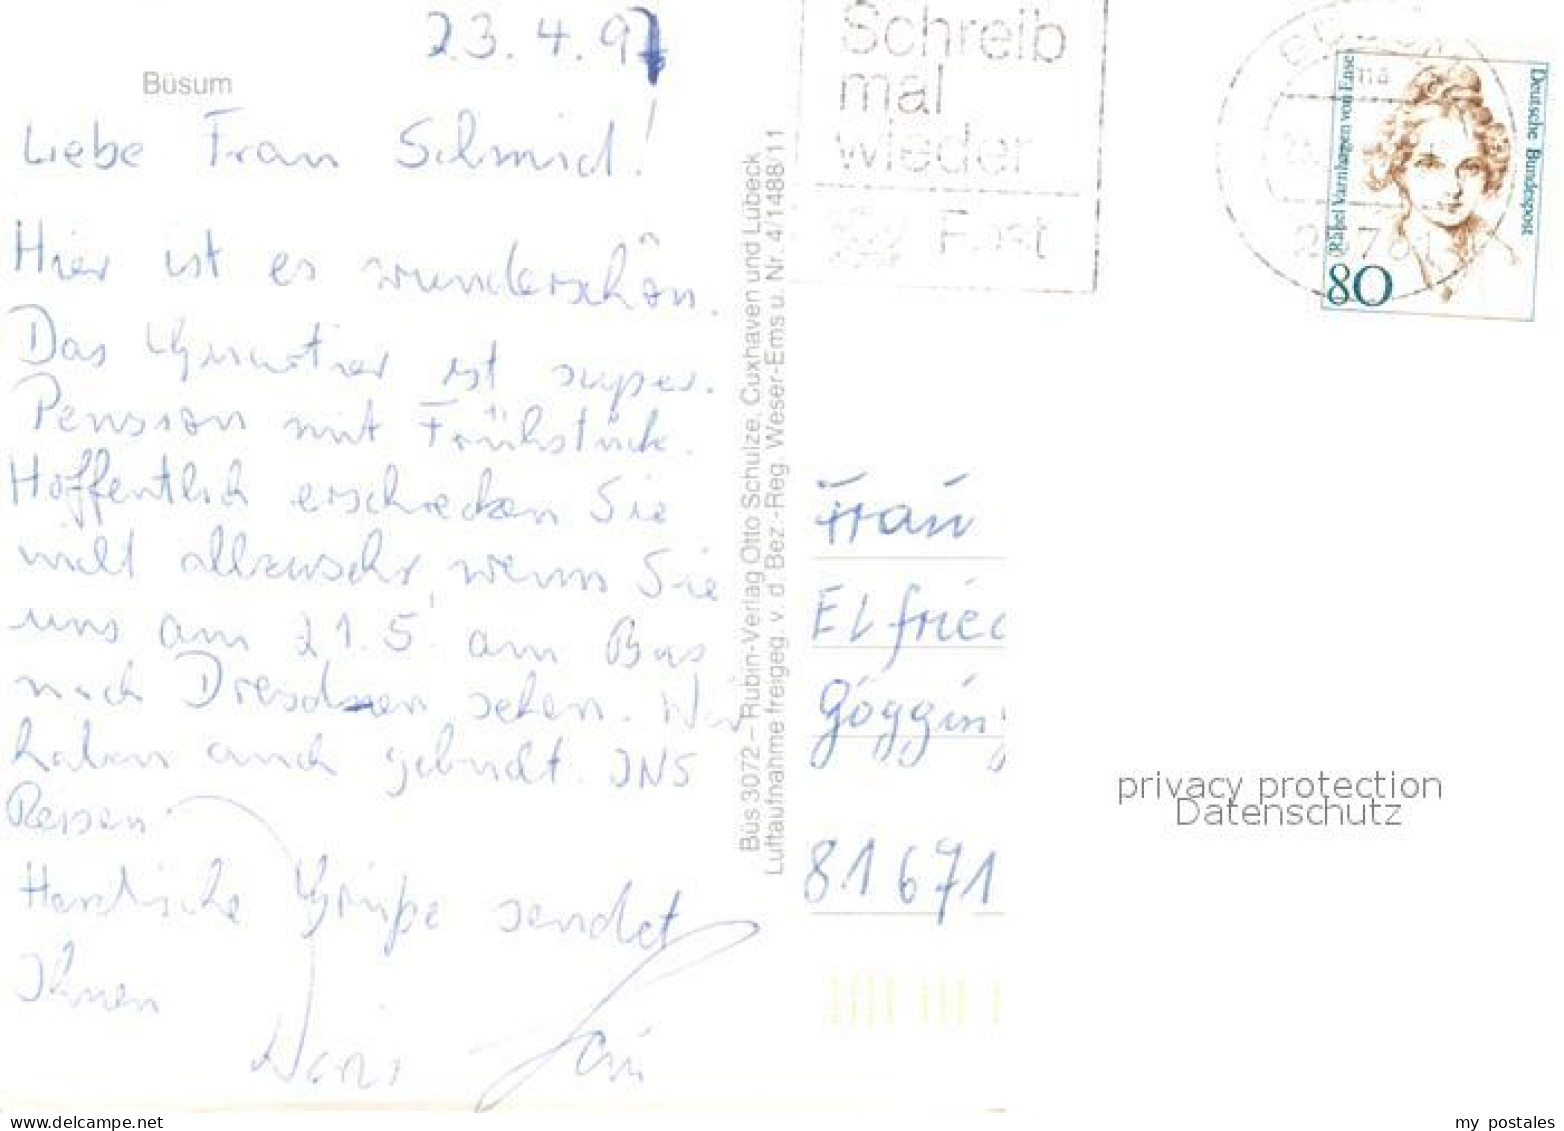 23.4.97
Büsum
Liebe Frau Schmid!
Hier ist es wunderschön.
Das Quartier ist super.
Pension mit Frühstück.
Hoffentlich erschrecken Sie
nicht allzusehr, wenn Sie
uns am 21.5. am Bus
nach Dresden sehen. Wir
haben auch gebucht. JNS
Reisen
Herzliche Grüße sendet
Ihnen
Büs 3072 – Rubin-Verlag Otto Schulze, Cuxhaven und Lübeck
Luftaufnahme freigeg. v. d. Bez.-Reg. Weser-Ems u. Nr. 4/1488/11
Schreib
mal
wieder
Post
Deutsche Bundespost
Rahel Varnhagen von Ense
80
Frau
Elfried
Gögging
81671
privacy protection
Datenschutz
www.delcampe.net
my postales